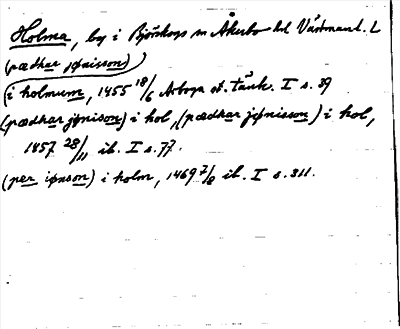 Holma, by i Björskogs sn Åkerbo hd Västmanl. L
(pædhar jønisson)
i holmum, 1455 18/6 Arboga st. tänk. I s. 39
(pædhar jønisson) i hol, (pædhar jønisson) i hol,
1457 28/11 ib. I s. 77.
(per iønson) i holm, 1469 7/8 ib. I s. 311.